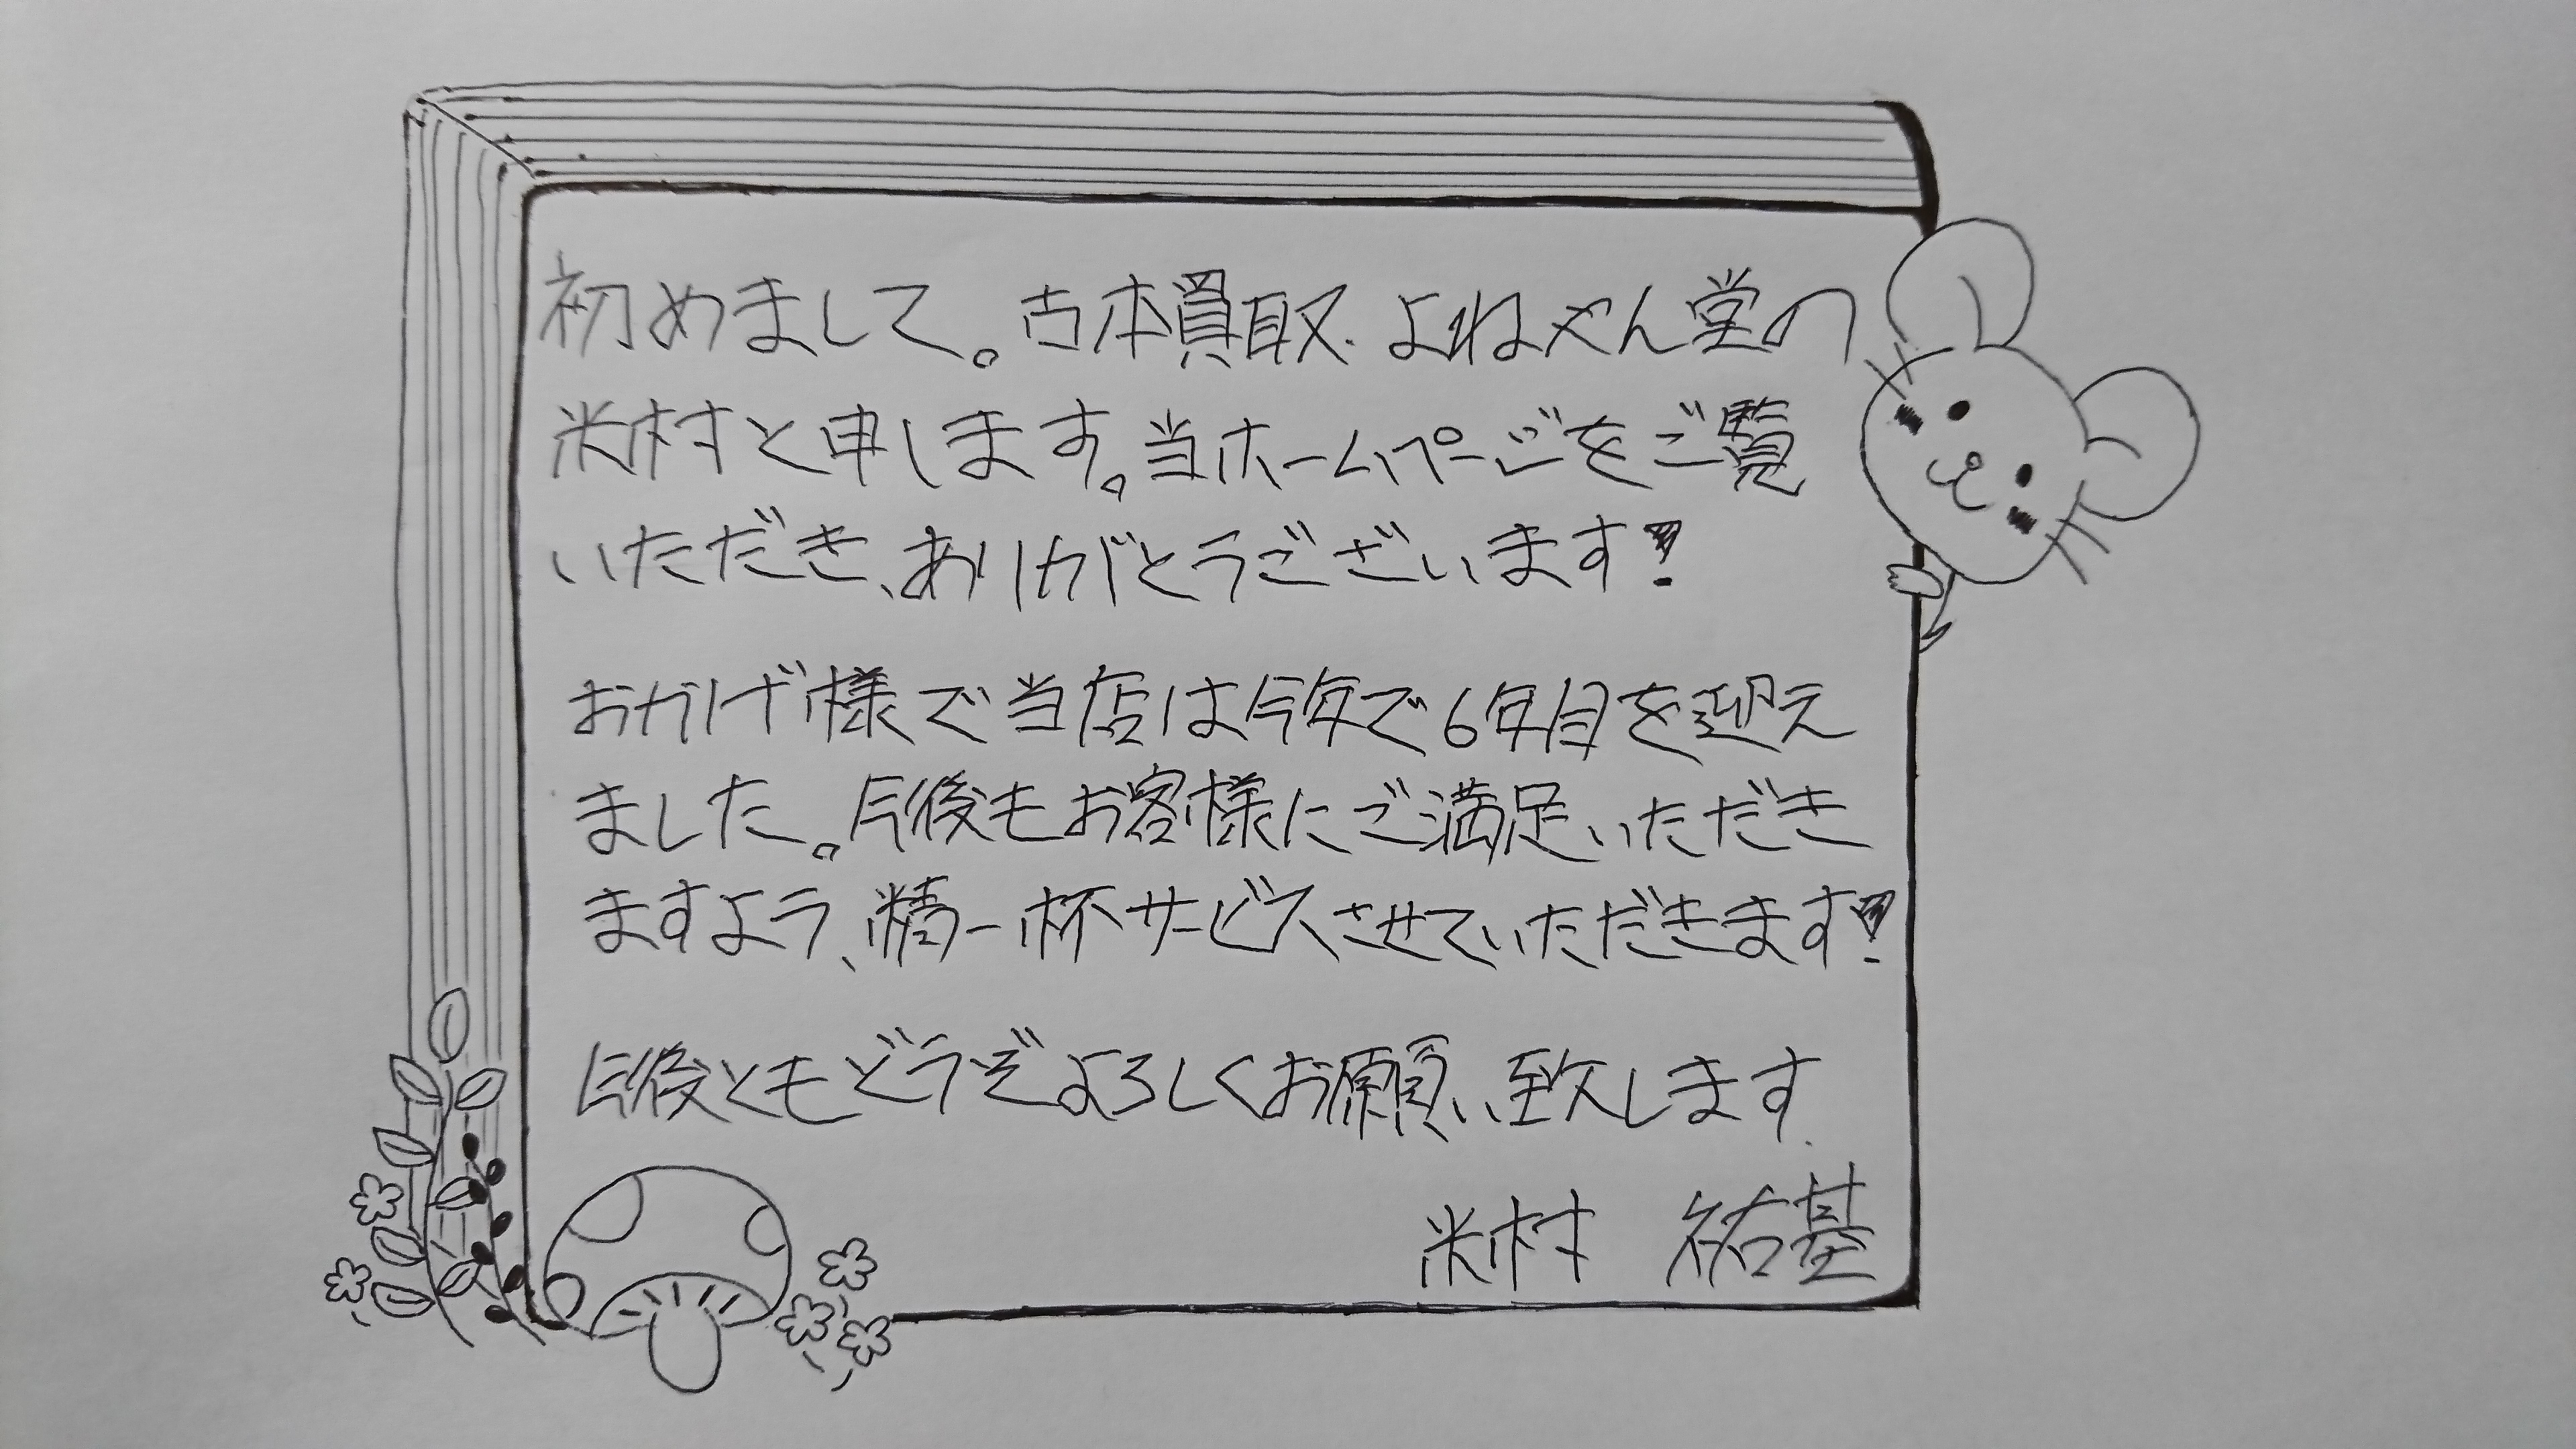 初めまして。古本買取 よねやん堂の
米村と申します。当ホームページをご覧
いただき、ありがとうございます!
おかげ様で当店は今年で6年目を迎え
ました。今後もお客様にご満足いただき
ますよう、精一杯サービスさせていただきます!
今後ともどうぞよろしくお願い致します.
米村 祐基